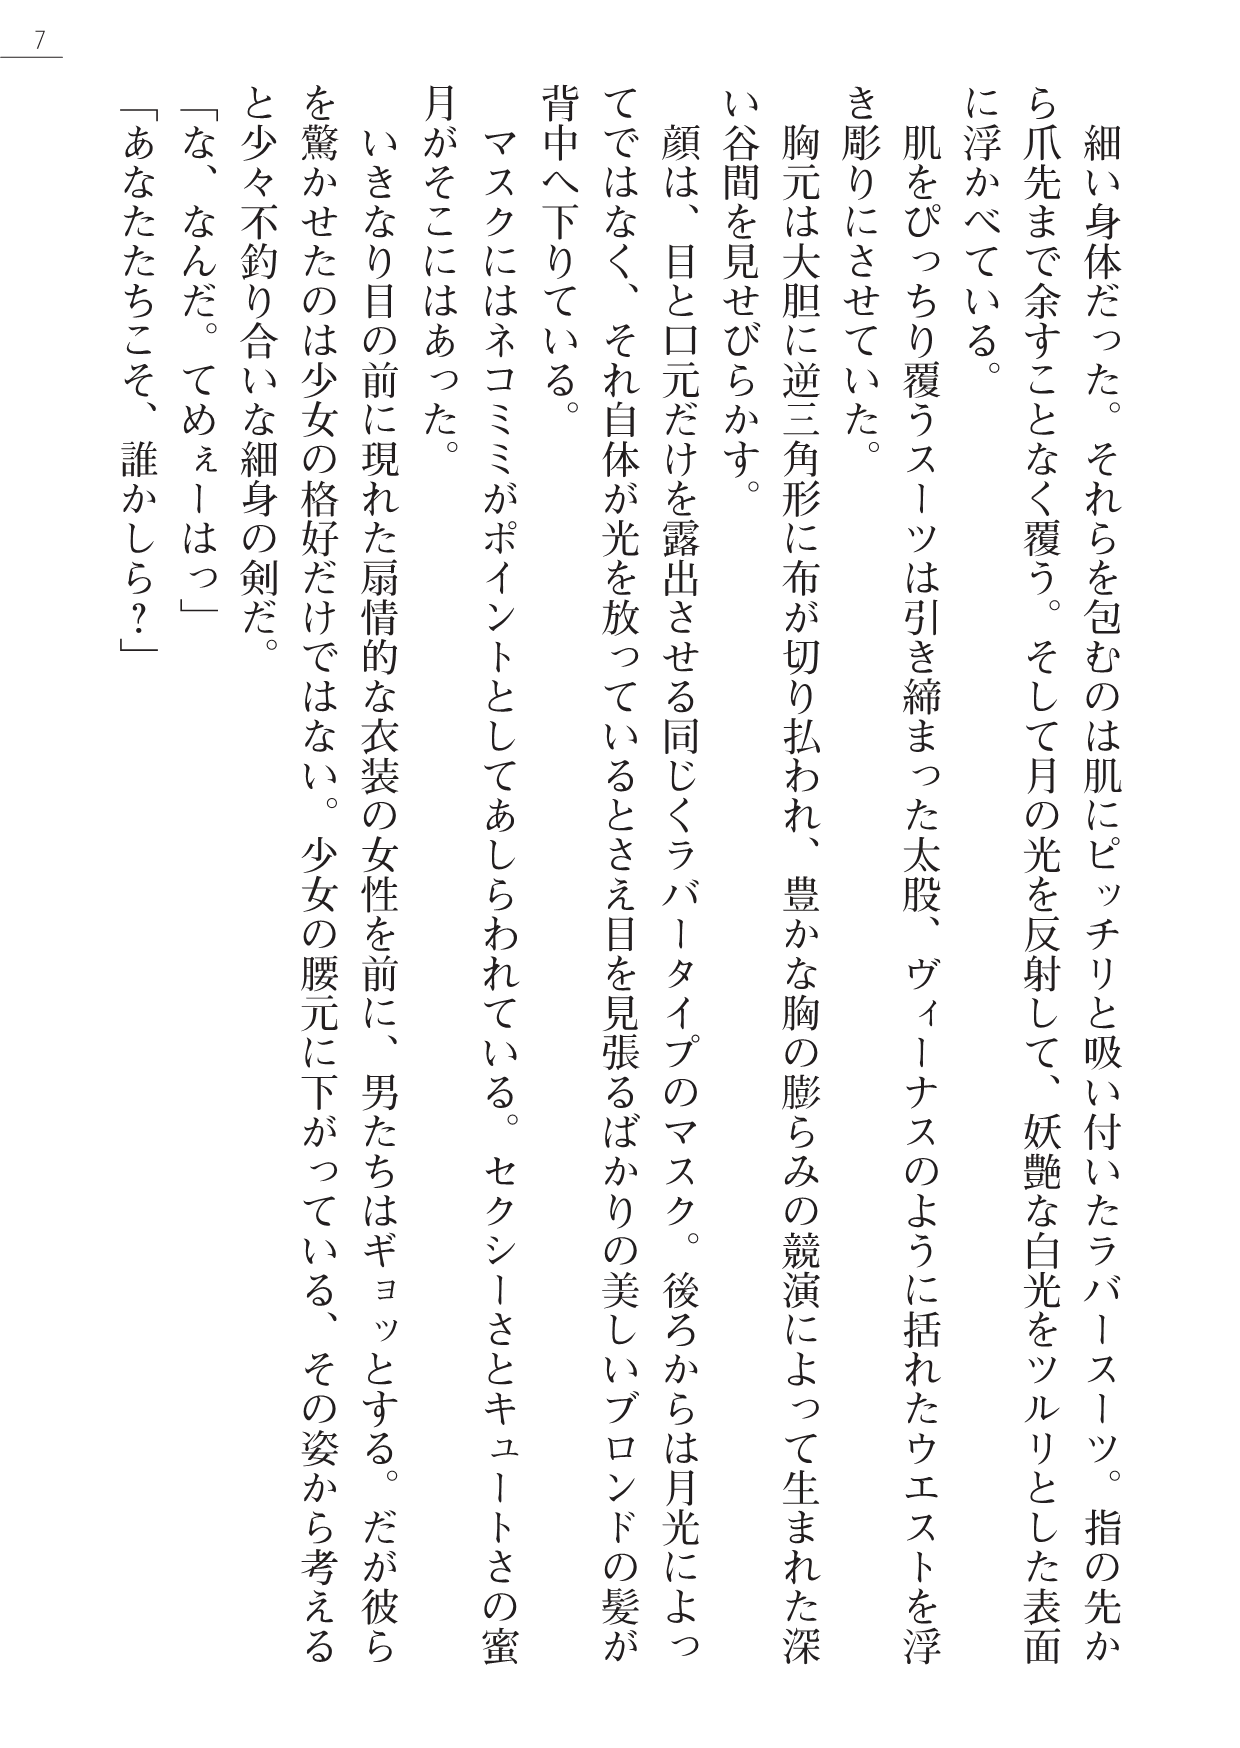 7
細い身体だった。それらを包むのは肌にピッチリと吸い付いたラバースーツ。指の先か
ら爪先まで余すことなく覆う。そして月の光を反射して、妖艶な白光をツルリとした表面
に浮かべている。
肌をぴっちり覆うスーツは引き締まった太股、ヴィーナスのように括れたウエストを浮
き彫りにさせていた。
胸元は大胆に逆三角形に布が切り払われ、豊かな胸の膨らみの競演によって生まれた深
い谷間を見せびらかす。
顔は、目と口元だけを露出させる同じくラバータイプのマスク。後ろからは月光によっ
てではなく、それ自体が光を放っているとさえ目を見張るばかりの美しいブロンドの髪が
背中へ下りている。
マスクにはネコミミがポイントとしてあしらわれている。セクシーさとキュートさの蜜
月がそこにはあった。
いきなり目の前に現れた扇情的な衣装の女性を前に、男たちはギョッとする。だが彼ら
を驚かせたのは少女の格好だけではない。少女の腰元に下がっている、その姿から考える
と少々不釣り合いな細身の剣だ。
「な、なんだ。てめぇーはっ」
「あなたたちこそ、誰かしら?」